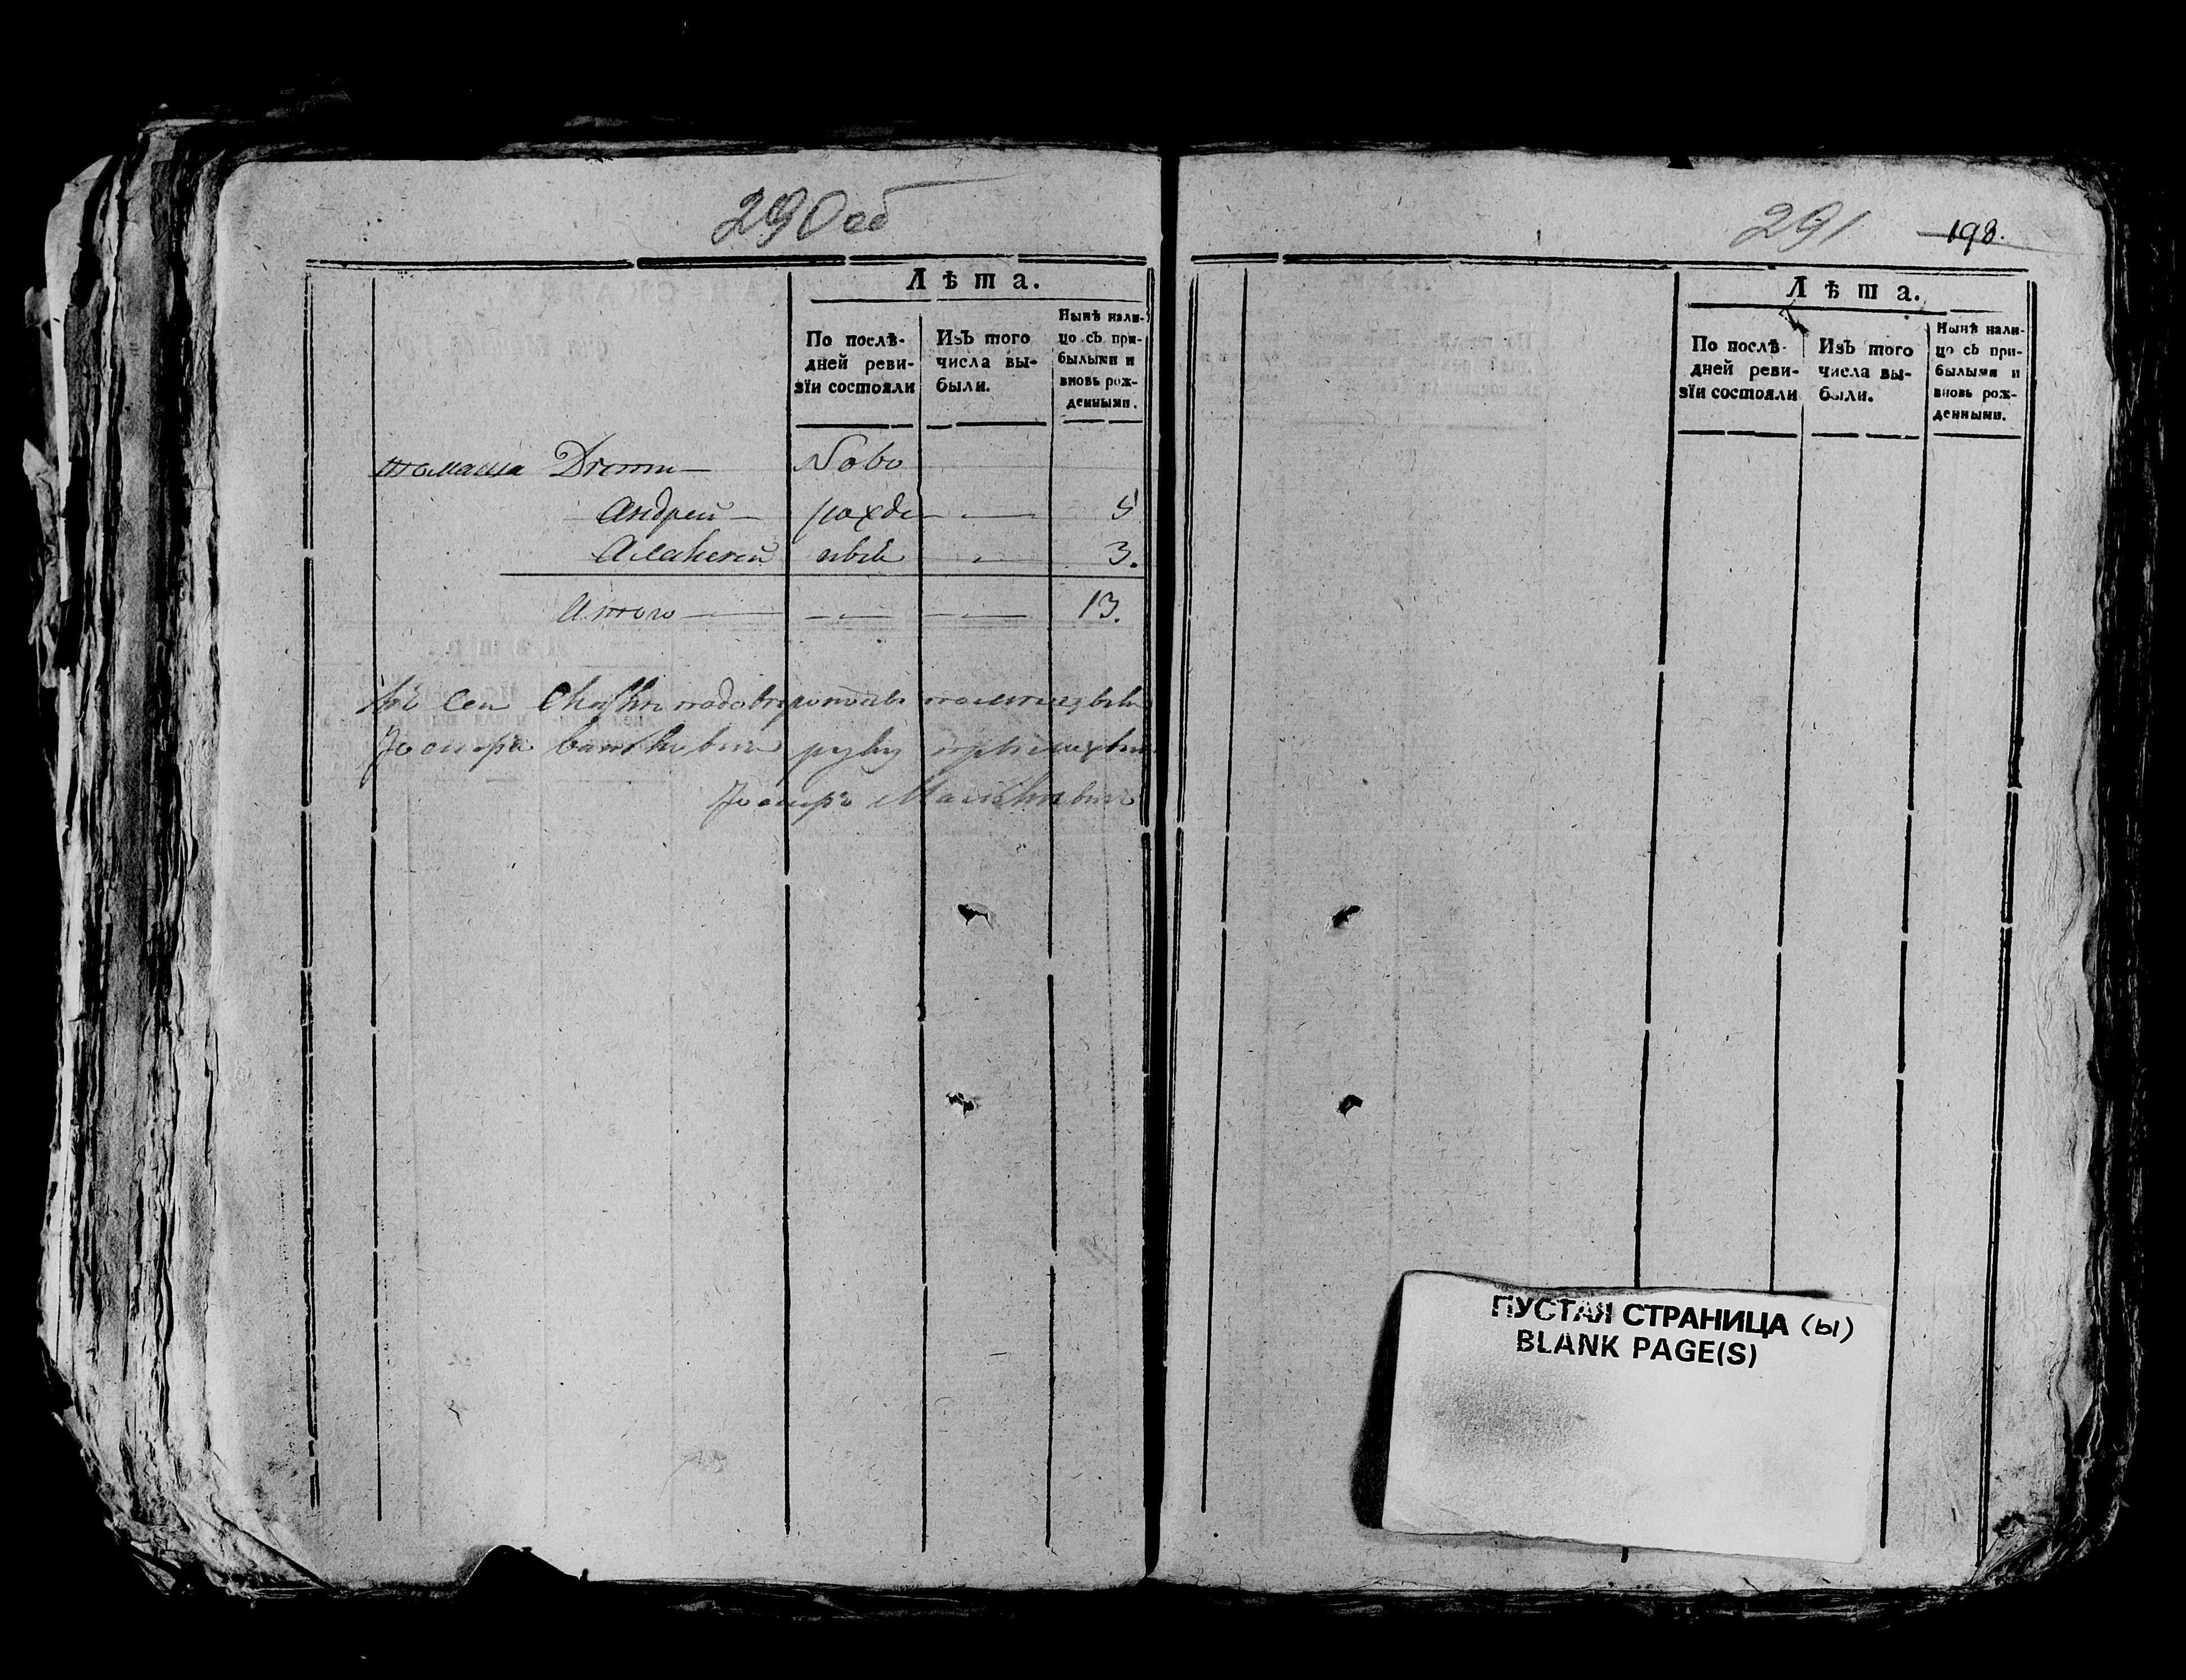 290об
Лѣта.
По послѣ-
дней реви-
зїи состояли
Изъ того
числа вы-
были.
Нынѣ нали-
цо съ при-
былыми и
вновь рож-
денными.
томаша Дѣти
Ново
Андрей
рожде
5
Алексей
нвѣ
3.
Итого
13.
Къ сей
Іосифа руку
Іосифъ
291
198.
Лѣта.
По послѣ-
дней реви-
зїи состояли
Изъ того
числа вы-
были.
Нынѣ нали-
цо съ при-
былыми и
вновь рож-
денными.
ПУСТАЯ СТРАНИЦА (ы)
BLANK PAGE(S)